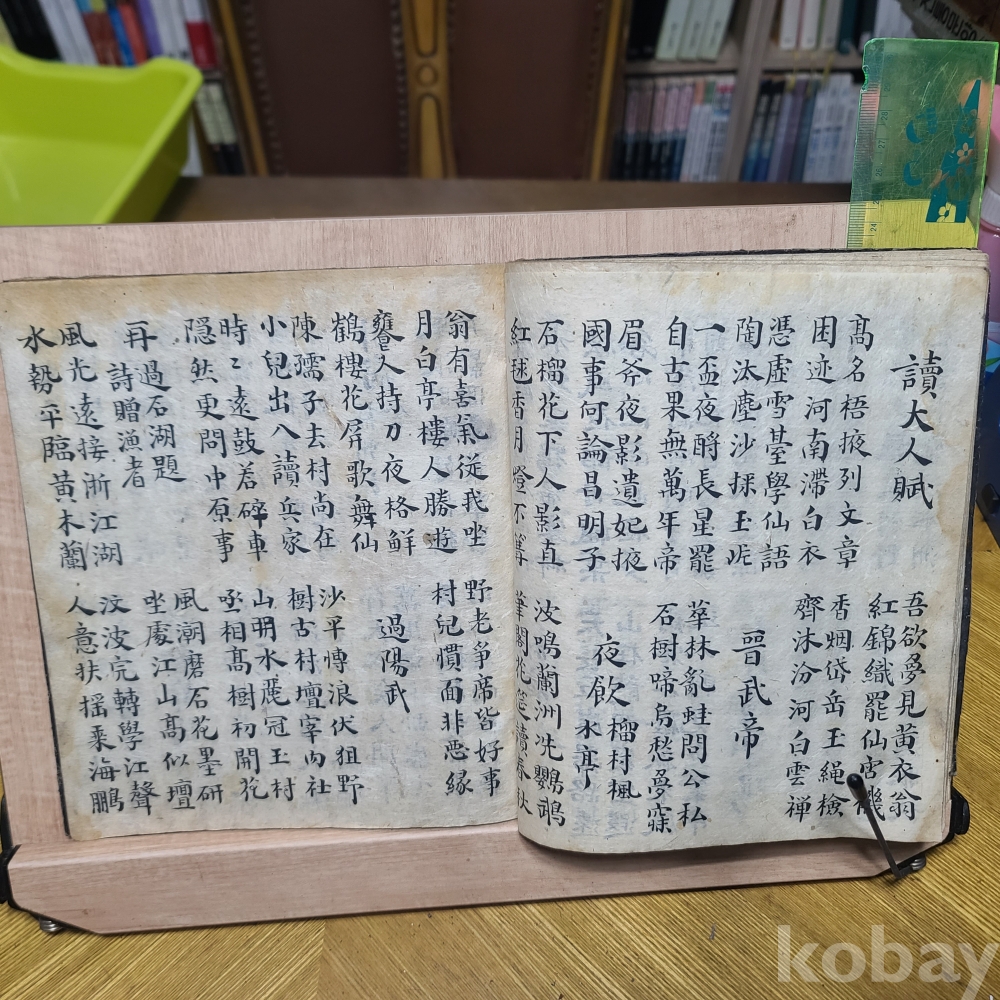 讀大人賦
吾欲夢見黃衣翁
高名梧掖列文章
紅錦織罷仙宮機
困迹河南滯白衣
香烟岱岳玉繩檢
憑虛雪臺學仙語
齊沐汾河白雲禅
陶汰塵沙採玉
晉武帝
一盃夜酹長星罷
華林亂蛙問公私
自古果無萬年帝
石樹啼烏愁夢寐
眉斧夜影遺妃掖
國事何論昌明子
夜飮榴村楓水亭
石榴花下人影直
波鳴蘭洲洗鸚鵡
紅毬香月燈不
花筵讀春秋
翁有喜氣從我坐
野老爭席皆好事
月白亭樓人勝遊
村兒慣面非惡緣
饔人持刀夜格鮮
過陽武
鶴樓花屛歌舞仙
沙平慱浪伏狙野
陳孺子去村尚在
樹古村壇宰肉社
小兒出入讀兵家
山明水麗冠玉村
時〻遠鼓若碎車
丞相高樹初開花
隠然更問中原事
風潮磨石花墨研
再過石湖題
詩贈漁者
坐處江山高似壇
風光遠接浙江湖
汶波完轉學江聲
水勢平臨黃木蘭
人意扶搖乘海鵬
kobay